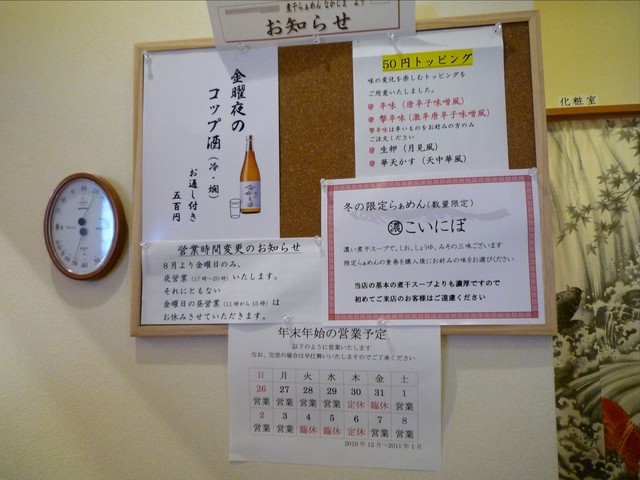 煮干らぁめん なかじま より
お知らせ
金曜夜の
コップ酒（冷・燗）
お通し付き
五百円
50円トッピング
味の変化を楽しむトッピングを
ご用意いたしました。
辛味（唐辛子味噌風）
撃辛味（激辛唐辛子味噌風）
撃辛味は辛いものをお好みの方のみ
ご注文ください
生卵（月見風）
華天かす（天中華風）
化粧室
冬の限定らぁめん（数量限定）
濃こいにぼ
濃い煮干スープで、しお、しょうゆ、みその三味ございます
限定らぁめんの食券を購入後にお好みの味をお選びください
当店の基本の煮干スープよりも濃厚ですので
初めてご来店のお客様はご遠慮ください
営業時間変更のお知らせ
8月より金曜日のみ、
夜営業（17時～20時）いたします。
それにともない
金曜日の昼営業（11時から15時）は
お休みさせていただきます。
年末年始の営業予定
以下のように営業いたします
なお、完売の場合は早仕舞いいたしますのでご了承ください
日 月 火 水 木 金 土
26 27 28 29 30 31 1
営業 営業 営業 営業 定休 臨休 営業
2 3 4 5 6 7 8
営業 営業 臨休 臨休 定休 営業 営業
2010年12月～2011年1月